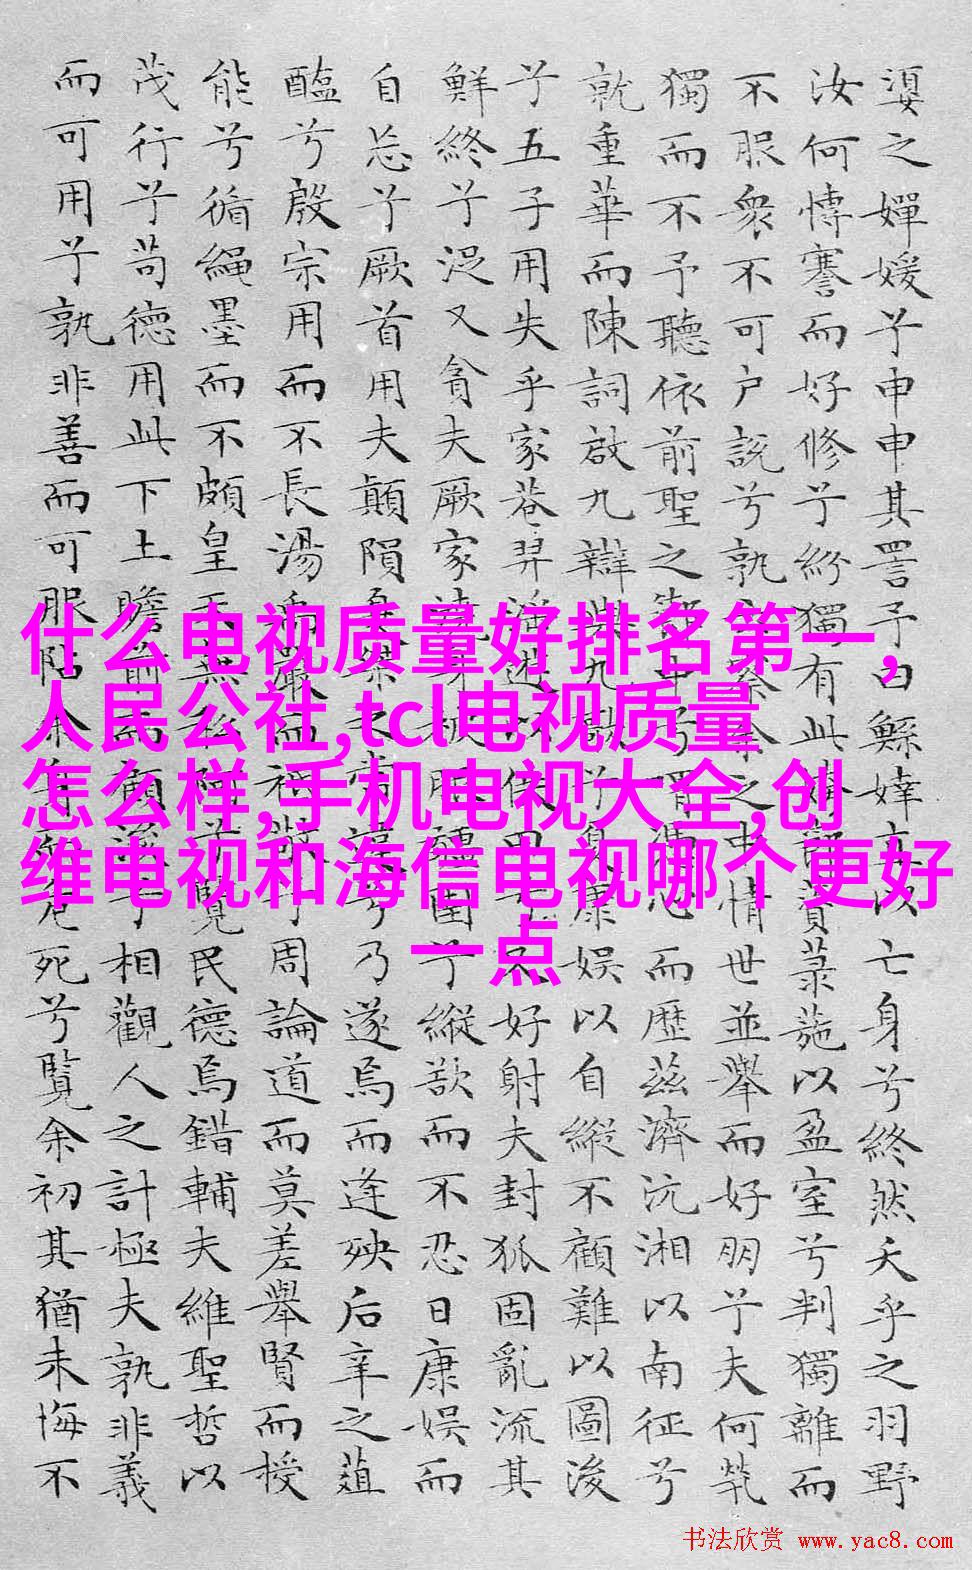 什么电视质量好排名第一,
人民公社,tcl电视质量
怎么样,手机电视大全,创
维电视和海信电视哪个更好
一点
之嬋媛兮申申其詈予曰鯀婞以亡身兮終然夭乎之羽野
汝何博謇而好修兮紛獨有此薋菉葹以盈室兮判獨離而
不服衆不可户説兮孰余之中情世並舉而好朋兮夫何煢
獨而不予聽依前聖之中兮喟心而歷茲濟沅湘以南征兮
就重華而陳詞啟九辯與九歌兮康娛以自縱不顧難以圖後
兮五子用失乎家巷羿淫遊以佚田兮又好射夫封狐固亂流其
鮮終兮浞又貪夫厥家被服圉兮縱欲而不忍日康娛而
自忘兮厥首用夫顛隕之常違兮乃遂焉而逢殃后辛之菹
醢兮殷宗用而不長湯禹嚴而祗敬兮周論道而莫差舉賢而授
能兮循繩墨而不頗皇天無私阿兮覽民德焉錯輔夫維聖哲以
茂行兮苟德用此下土瞻前而顧後兮相觀人之計極夫孰非義
而可用兮孰非善而可服阽余危死兮覽余初其猶未悔不
书法欣赏 www.yac8.com